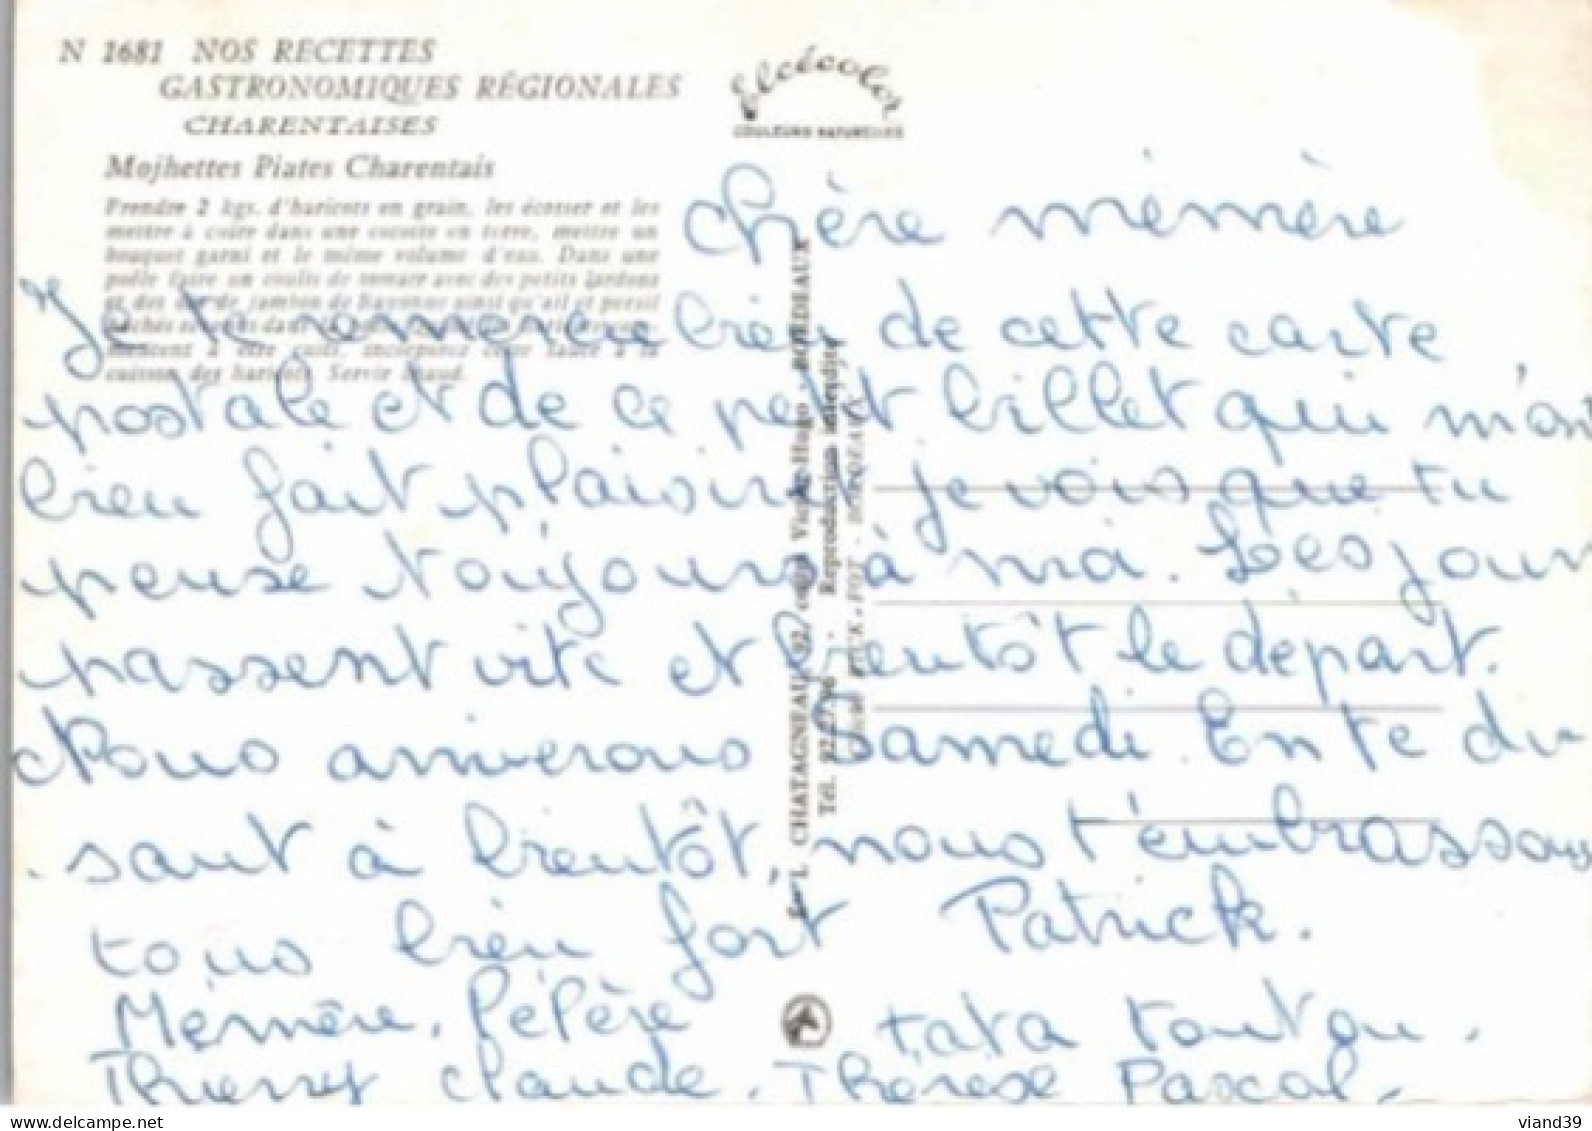 N 1681 NOS RECETTES
GASTRONOMIQUES RÉGIONALES
CHARENTAISES
Mojhettes Piates Charentais
Prendre 2 kgs. d'haricots en grain, les écosser et les
mettre à cuire dans une cocotte en terre, mettre un
bouquet garni et le même volume d'eau. Dans une
poêle faire un coulis de tomate avec des petits lardons
et des dés de jambon de Bayonne ainsi qu'ail et persil
mentent à être cuits, incorporez cette sauce à la
cuisson des haricots. Servir chaud.
Elcécolor
COULEURS NATURELLES
Chère mémère
Je te remercie bien de cette carte
postale et de ce petit billet qui m'ont
bien fait plaisir je vois que tu
pense toujours à moi. Les jour
passent vite et bientôt le départ.
Nous arriverons Samedi. En te di
sant à bientôt, nous t'embrassons
tous bien fort Patrick.
Mémère, Pépère tata tonton.
Thierry Claude. Thérèse Pascal.
L. CHATAGNEAU, 92, cours Victor-Hugo - BORDEAUX
Tél. - Reproduction interdite
- BORDEAUX
viand39